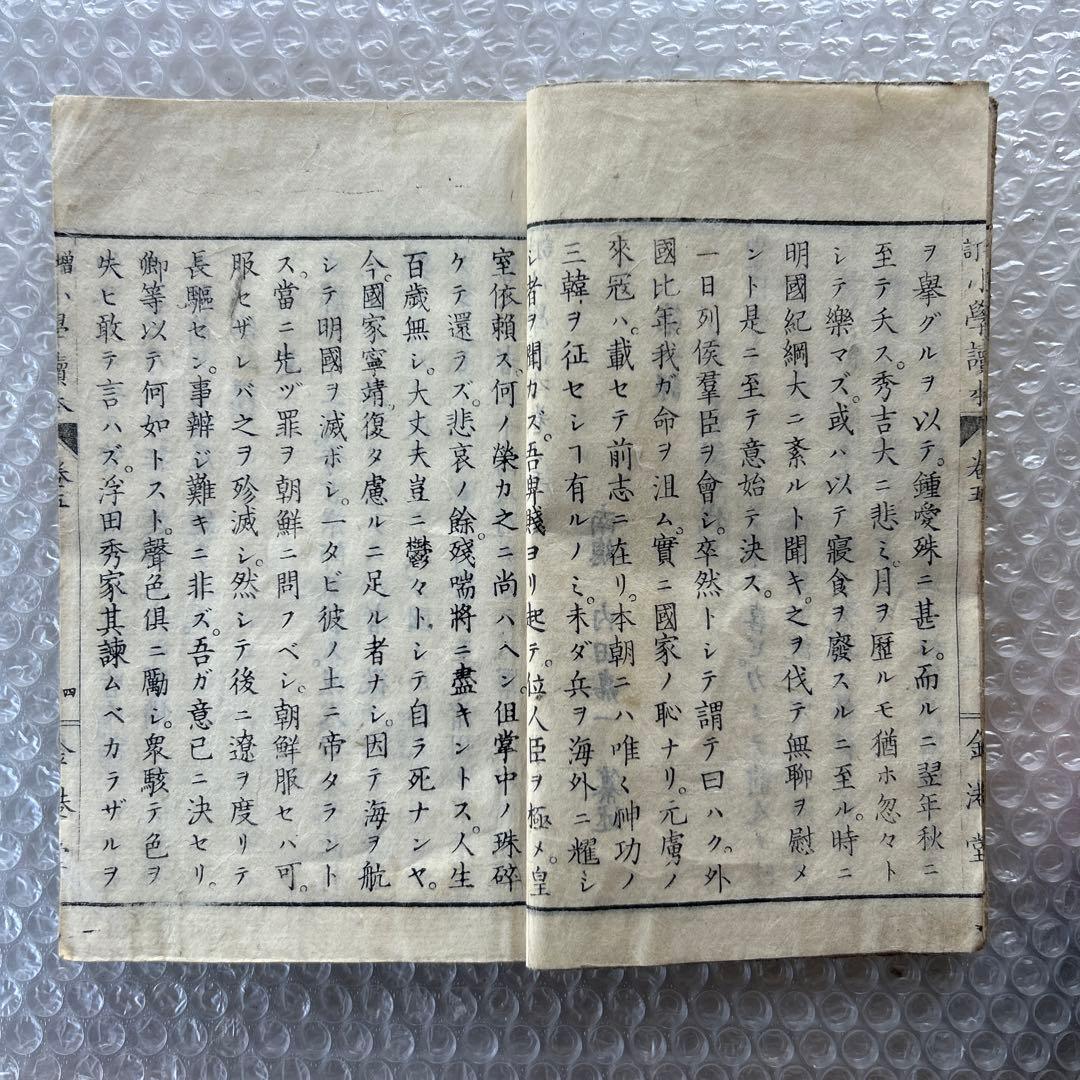 訂小學讀本 卷五 金港堂
ヲ擧グルヲ以テ。鍾愛殊ニ甚シ。而ルニ翌年秋ニ
至テ夭ス。秀吉大ニ悲ミ。月ヲ歷ルモ猶ホ忽々ト
シテ樂マズ。或ハ以テ寢食ヲ廢スルニ至ル。時ニ
明國紀綱大ニ紊ルト聞キ。之ヲ伐テ無聊ヲ慰メ
ント是ニ至テ意始テ決ス。
一日列侯羣臣ヲ會シ。卒然トシテ謂テ曰ハク。外
國比年我ガ命ヲ沮ム。實ニ國家ノ恥ナリ。元虜ノ
來寇ハ。載セテ前志ニ在リ。本朝ニハ唯々神功ノ
三韓ヲ征セシヿ有ルノミ。未ダ兵ヲ海外ニ耀シ
シ者ヲ聞カズ。吾卑賤ヨリ起テ。位人臣ヲ極メ。皇
室依賴ス。何ノ榮カ之ニ尚ハヘン。但掌中ノ珠碎
ケテ還ラズ。悲哀ノ餘。殘喘將ニ盡キントス。人生
百歲無シ。大丈夫豈ニ鬱々トシテ自ラ死ナンヤ。
今。國家寧靖。復タ慮ルニ足ル者ナシ。因テ海ヲ航
シテ明國ヲ滅ボシ。一タビ彼ノ土ニ帝タラント
ス。當ニ先ヅ罪ヲ朝鮮ニ問フベシ。朝鮮服セハ可。
服セザレバ之ヲ殄滅シ。然シテ後ニ遼ヲ度リテ
長驅セン。事辨ジ難キニ非ズ。吾ガ意已ニ決セリ。
卿等以テ何如トスト。聲色俱ニ勵シ。衆駭テ色ヲ
失ヒ敢テ言ハズ。浮田秀家其諫ムベカラザルヲ
增小學讀本 卷五 四 金港堂